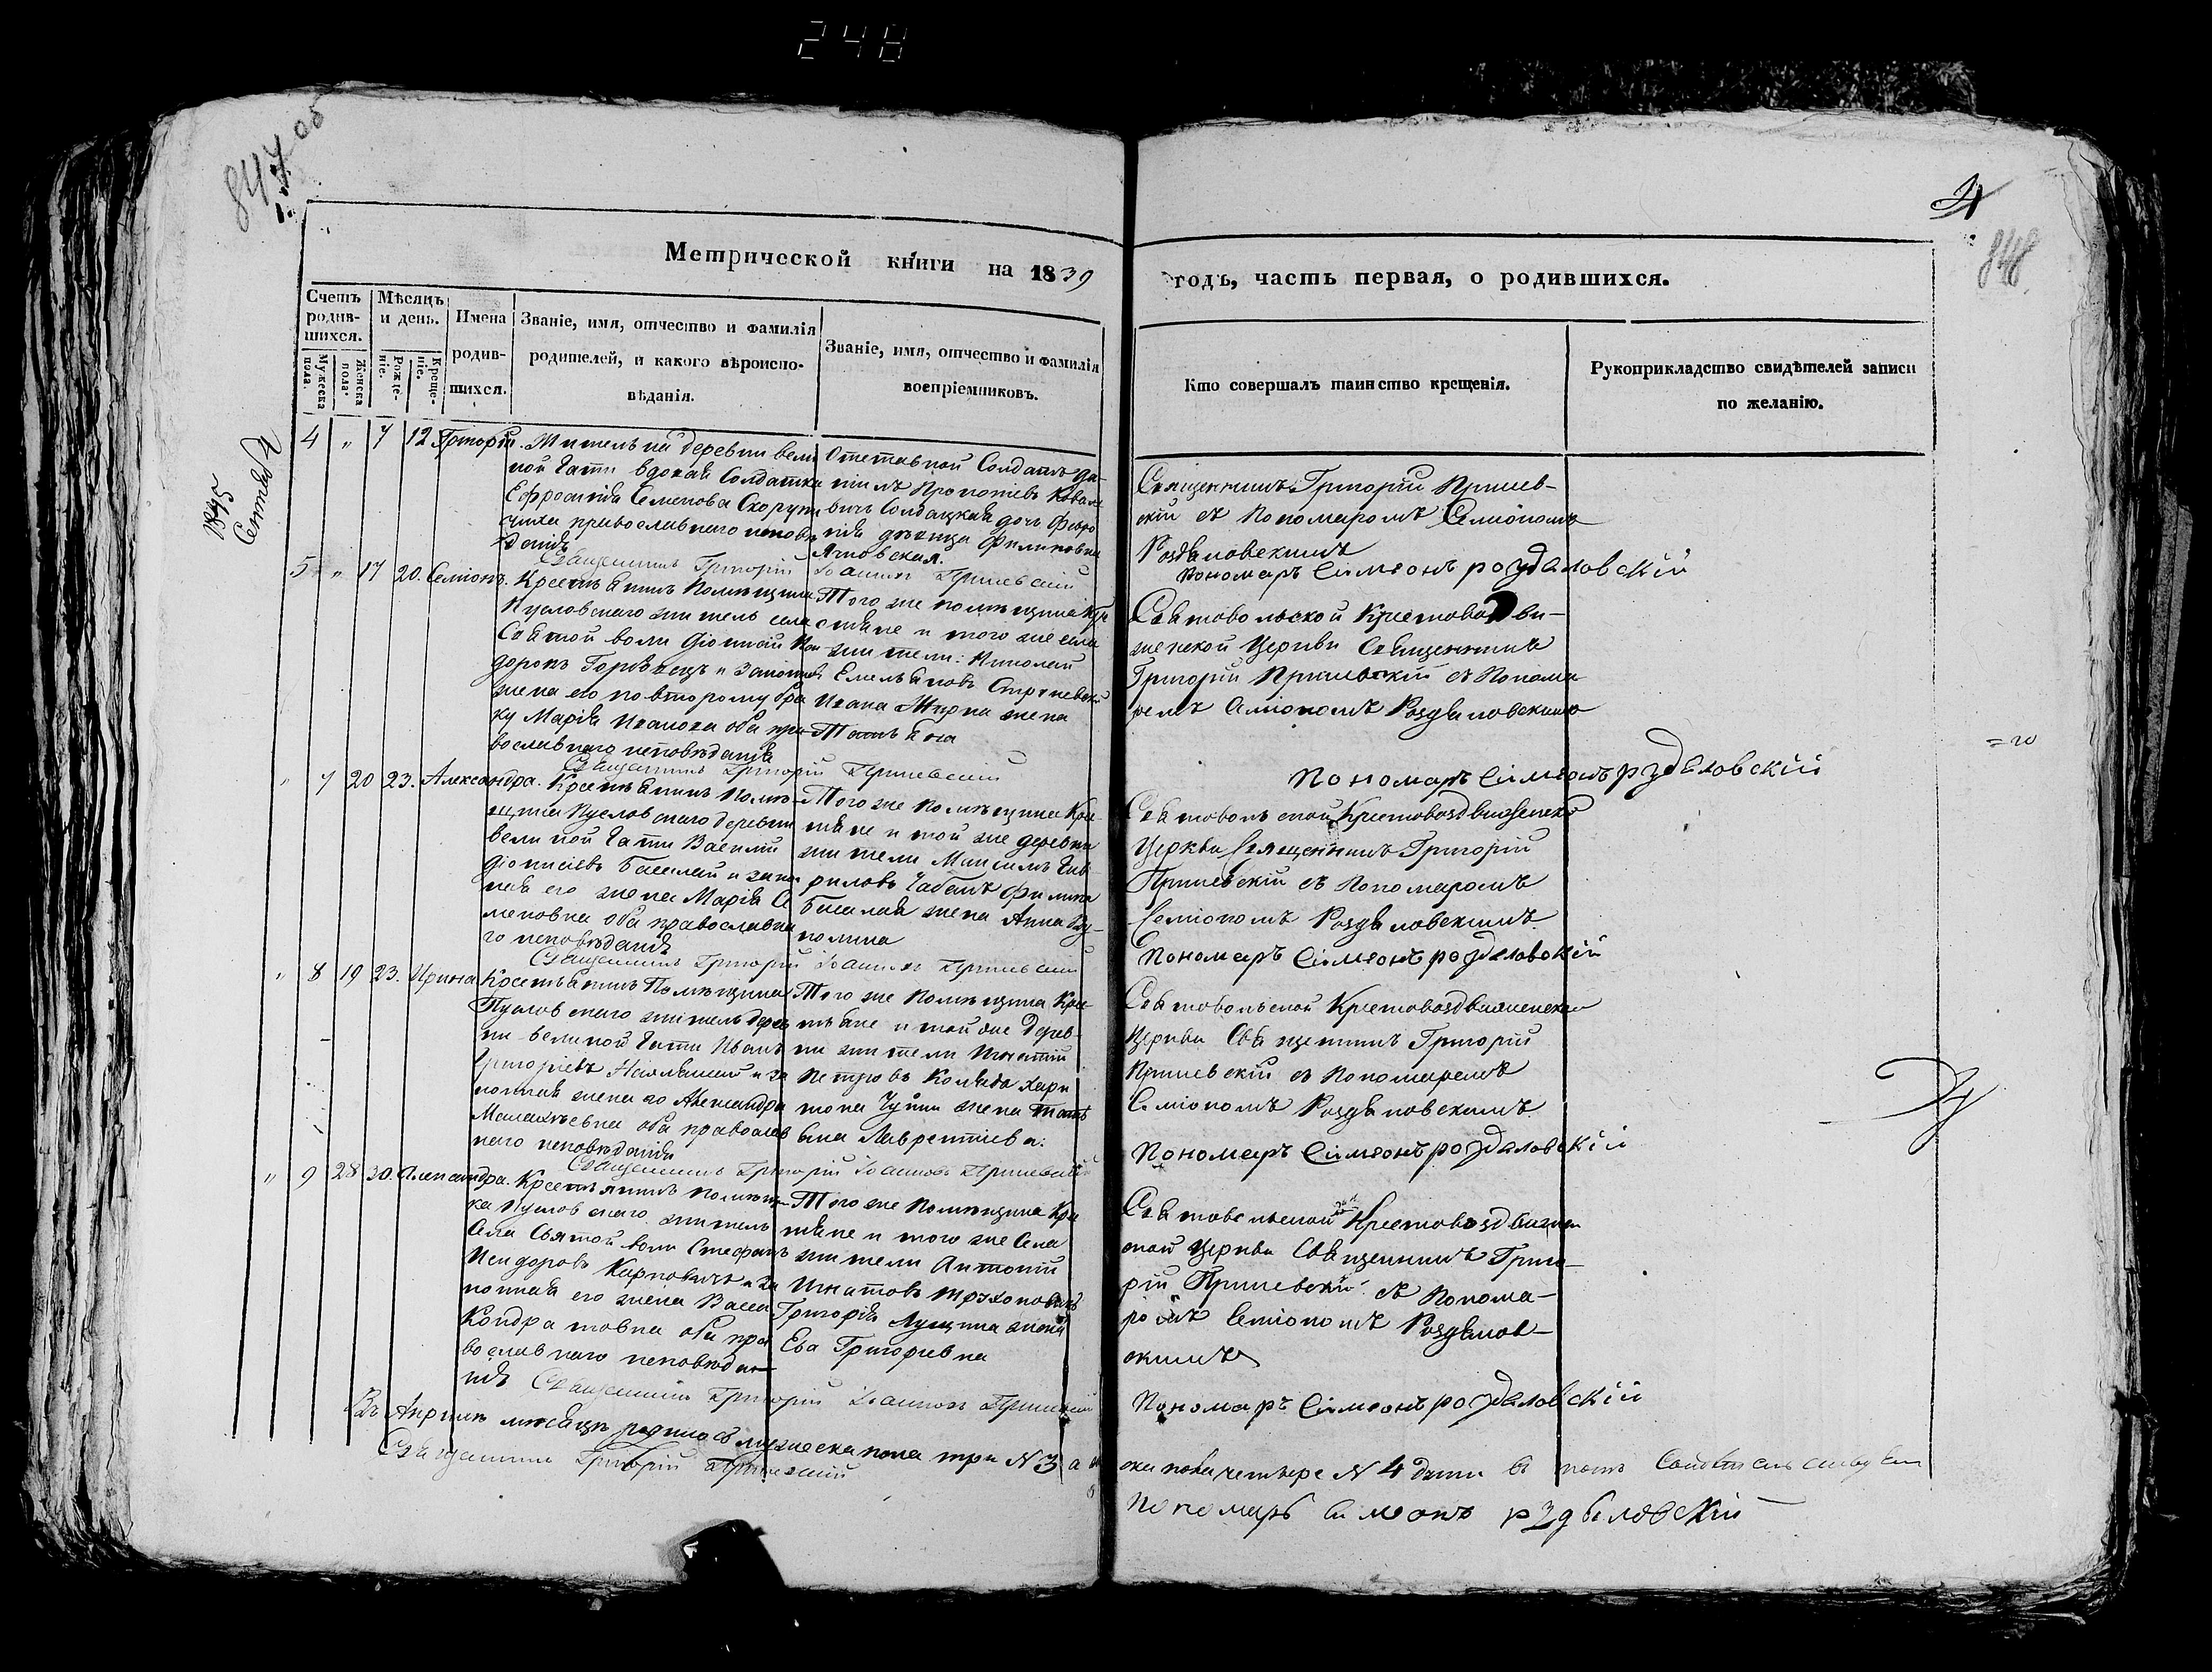 248
847 об
848
4
Метрической книги на 1839
годъ, часть первая, о родившихся.
Счетъ родив-
шихся.
Мужеска пола.
Женска пола.
Мѣсяцъ
и день.
Рожде-
ніе.
Креще-
ніе.
Имена
родив-
шихся.
Званіе, имя, отчество и фамилія
родителей, и какого вѣроиспо-
вѣданія.
Званіе, имя, отчество и фамилія
воспріемниковъ.
Кто совершалъ таинство крещенія.
Рукоприкладство свидѣтелей записи
по желанію.
1845
4 " 7 12 Григорій.
Жительки деревни вели
кой Гати вдовая Солдатка
Ефросинія Семенова Скорупи
чиха православнаго исповѣ
данія
Отставной Солдатъ Да-
нилъ Прокопіевъ Ковале
вичъ Солдацкая дочъ Февро
нія дѣвица Филиповна
Священникъ Григорій Пришев-
скій съ Пономаромъ Семіономъ
Роздяловскимъ
Пономаръ Симеонъ роздяловскій
Священникъ Григорій Іоанновъ Пришевскій
5 " 17 20. Семіонъ.
Крестьянинъ Помѣщика
Пусловскаго житель села
Святой воли Діонисій Иси
доровъ Горбацъ и Законная
жена его по второму бра
ку Марія Иванова оба пра
вославнаго исповѣданія
Того же помѣщика Кре
стяне и того же села
жители: Николай
Емельяновъ
Ивана Жирка жена
Татьяна
Святовольской Крестовоздви-
женской Церкви Священникъ
Григорій Пришевскій съ Понома
ремъ Семіономъ Роздяловскимъ
Священникъ Григорій Пришевскій
Пономаръ Симеонъ рздяловскій
" 7 20 23. Александра.
Крестьянинъ Помѣ-
щика Пусловскаго деревни
великой Гати Василій
Діонисіевъ Басалай и закон
ная его жена Марія Се
меновна оба православна
го исповѣданія
Того же Помѣщика Кре-
стяне и той же деревни
жители Максимъ Гав
риловъ Чабанъ Филипа
Басалая жена Анна Ку-
Святовольской Крестовоздвиженской
Церкви Священникъ Григорій
Пришевскій съ Пономаромъ
Семіономъ Роздяловскимъ.
Пономаръ Симеонъ роздяловскій
Священникъ Григорій Іоанновъ Пришевскій
" 8 19 23. Ирина
Крестьянинъ Помѣщика
Пусловскаго житель дерев
ни великой Гати Иванъ
Григоріевъ и за
конная жена его Александра
оба православ
наго исповѣданія
Того же Помѣщика Кре-
стьяне и той же Дерев-
ни жители Игнатій
Петровъ Коляда Хари
тона жена Тать
яна Лаврентіева.
Святовольской Крестовоздвиженской
Церкви Священникъ Григорій
Пришевскій съ Пономаремъ
Семіономъ Роздяловскимъ.
Пономаръ Симеонъ роздяловскій
Священникъ Григорій Іоанновъ Пришевскій
" 9 28 30. Александра.
Крестьянинъ помѣщи
ка Пусловскаго житель
Села Святой воли Стефанъ
Исидоровъ Карповичъ и за
конная его жена Васса
Кондратовна оба пра
вославнаго исповѣда
нія
Того же Помѣщика Кре
стяне и того же Села
жители Антоній
Игнатовъ
Григорія Лущика жена
Ева Григорьевна
Святовольской Крестовоздвижен
ской Церкви Священникъ Григо-
рій Пришевскій съ Понома-
ромъ Семіономъ Роздялов-
скимъ
Священникъ Григорій Іоанновъ Пришевскій
Пономаръ Симеонъ роздяловскій
Въ Априлѣ мѣсяцѣ родилось мужеска пола три N 3 а
ска пола четыре N 4 Дѣти въ томъ
Священникъ Григорій Пришевскій
Пономаръ Симеонъ рздяловскій